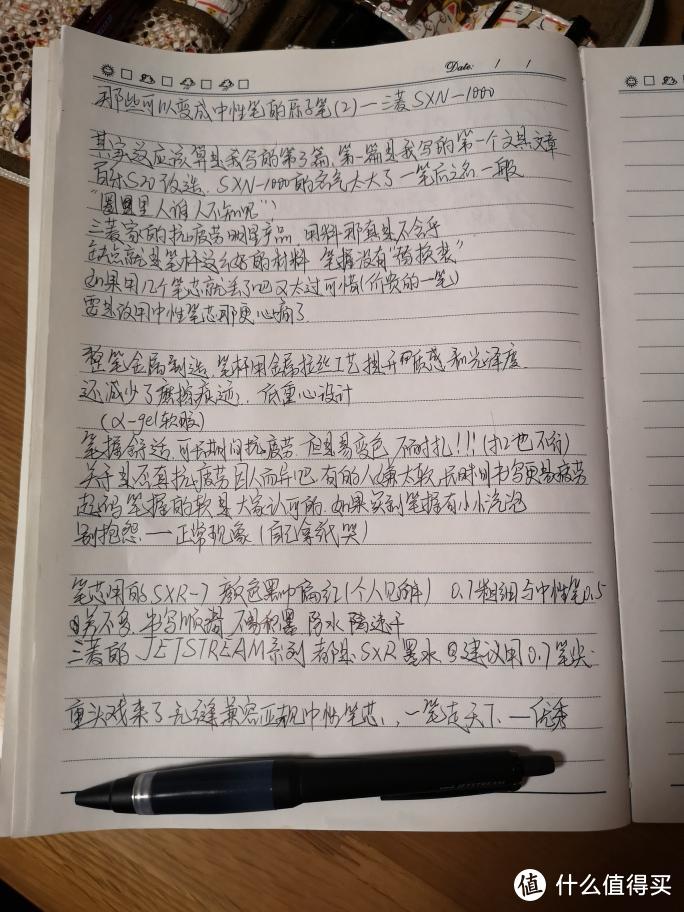 Date: / /
那些可以变成中性笔的原子笔(2)一三菱SXN-1000
其实这应该算是我写的第3篇,第一篇是我写的第一个文具文章
百乐S20改造. SXN-1000的名气太大了 一笔后之名 一般
“圈里人谁人不知呢”
三菱家的抗疲劳明星产品 用料那真是不含乎
缺点就是笔杆这么好的材料 笔握没有“替换装”
如果用几个笔芯就丢了吧又太过可惜(价贵的一笔)
需是改用中性笔芯那更心痛了
整笔金属制造,笔杆用金属拉丝工艺 提升的质感和光泽度
还减少了磨擦痕迹, 低重心设计
(α-gel软胶)
笔握舒适,可长期间抗疲劳 但是易变色 不耐扎!!!(扎也不行)
关于是否真抗疲劳因人而异吧,有的人嫌太软,长时间书写更易疲劳
起码笔握的软是大家认可的,如果买到笔握有小小汽泡
别抱怨.一正常现象(自己拿纸哭)
笔芯用的SXR-7 颜色黑中偏红(个人见解) 0.7粗细与中性笔0.5
相差不多,书写顺滑 不易积墨 防水 随速干
三菱的JETSTREAM系列 都是SXR墨水 只建议用0.7笔尖
重头戏来了 无缝兼容正规中性笔芯,,一笔走天下.一优秀
JETSTREAM
值 什么值得买